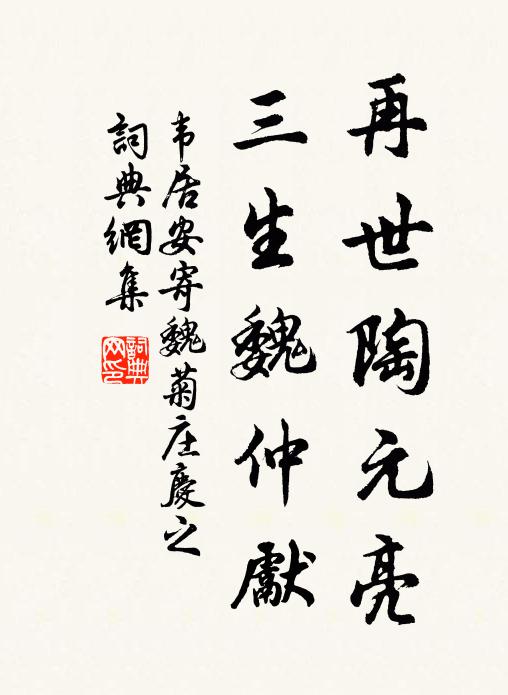 再世陶元亮
三生魏仲獻
韦居安寄魏菊庄慶之
詞典網集
詞典网印